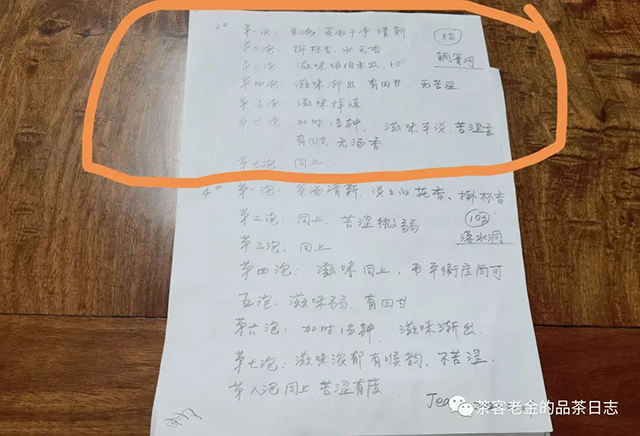 第一泡: 茶汤干净 清新
8g
第二泡: 挂杯香, 水无香
铜箐河
第三泡: 滋味依旧未出
第四泡: 滋味渐出 有回甘, 无苦涩
第五泡: 滋味
第六泡: 加时15秒钟, 滋味平淡, 苦涩显
有回甘, 无汤香.
第七泡: 同上.
第一泡: 茶汤清新, 淡淡的花香、挂杯香
10g
第二泡: 同上, 苦涩微弱
落水洞
第三泡: 同上
第四泡: 滋味同上, 平衡度尚可
五泡: 滋味弱, 有回甘
第六泡: 加时15秒钟, 滋味渐出.
第七泡: 滋味浓郁有喉韵, 不苦涩.
第八泡 同上, 苦涩有度.
茶客老金的品茶日志